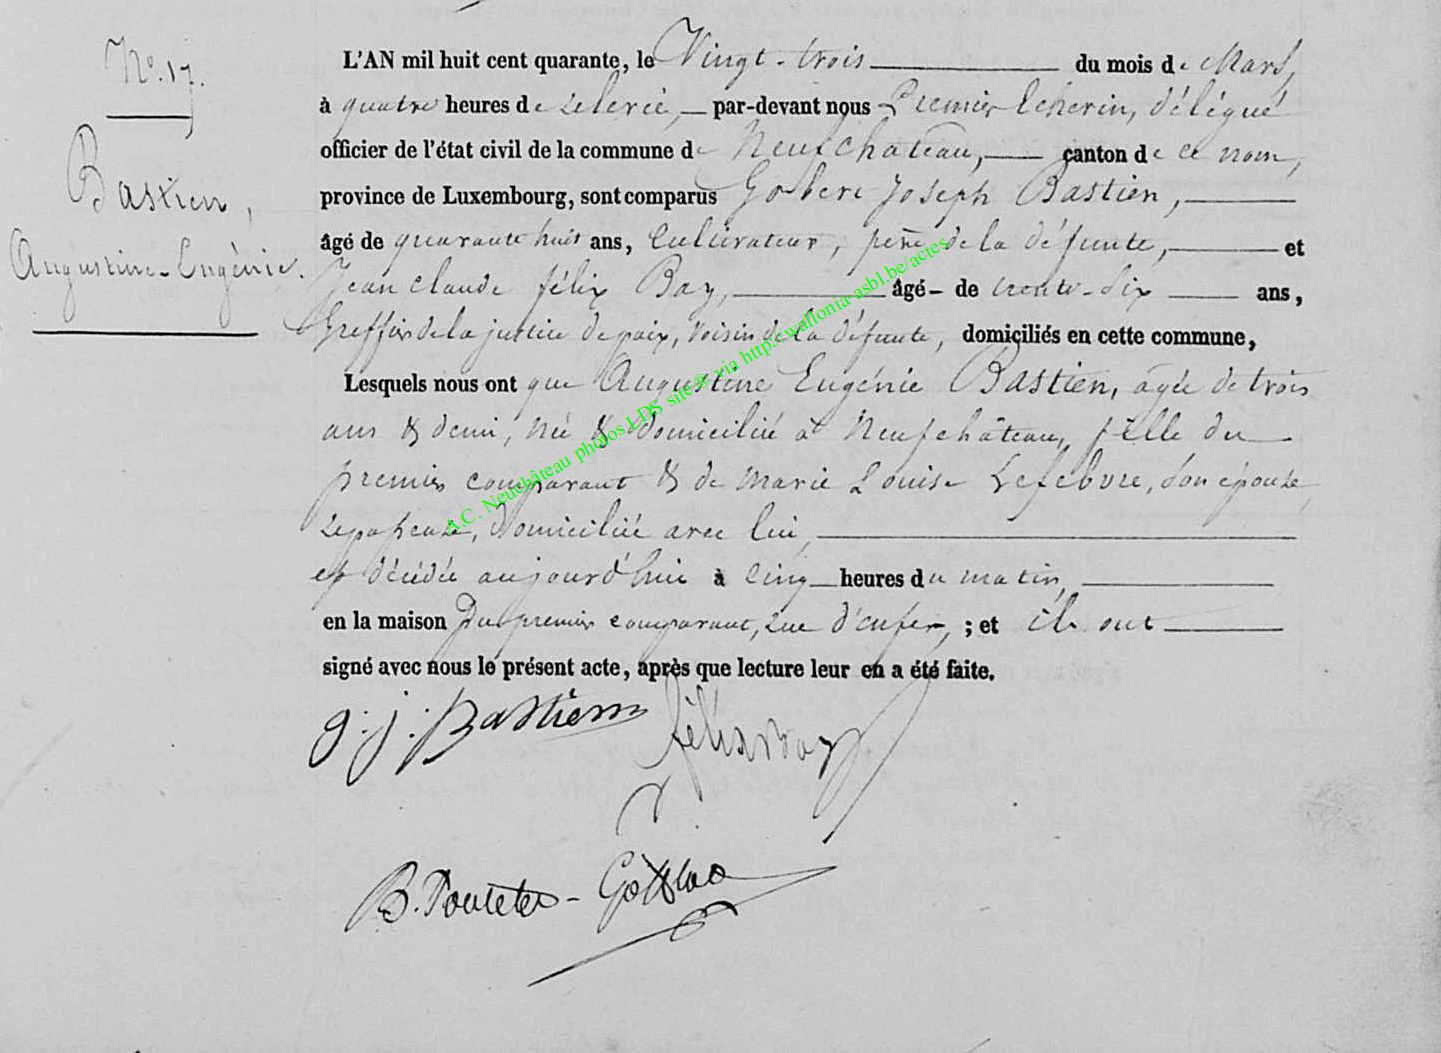 N°. 17.
Bastien,
Augustine-Eugénie.
L'AN mil huit cent quarante, le Vingt-trois du mois de Mars,
à quatre heures de relevée, par-devant nous Premier Echevin, délégué
officier de l'état civil de la commune de Neufchateau, canton de ce nom,
province de Luxembourg, sont comparus Joseph Bastien,
âgé de quarante huit ans, Cultivateur, père de la défunte, et
Jean Claude félix âgé de trente-six ans,
Greffier de la justice de paix, voisin de la défunte, domiciliés en cette commune,
Lesquels nous ont que Augustine Eugénie Bastien, agée de trois
ans & demi, née & domiciliée à Neufchâteau, fille du
premier comparant & de Marie Louise Lefebvre, son épouse,
domiciliée avec lui,
est décédée aujourd'hui à cinq heures du matin,
en la maison Du premier comparant, rue d'enfer, ; et ils ont
signé avec nous le présent acte, après que lecture leur en a été faite.
g. j. Bastien
félix
A.C. Neuchâteau photos LDS sites via http://wallonia-asbl.be/actes